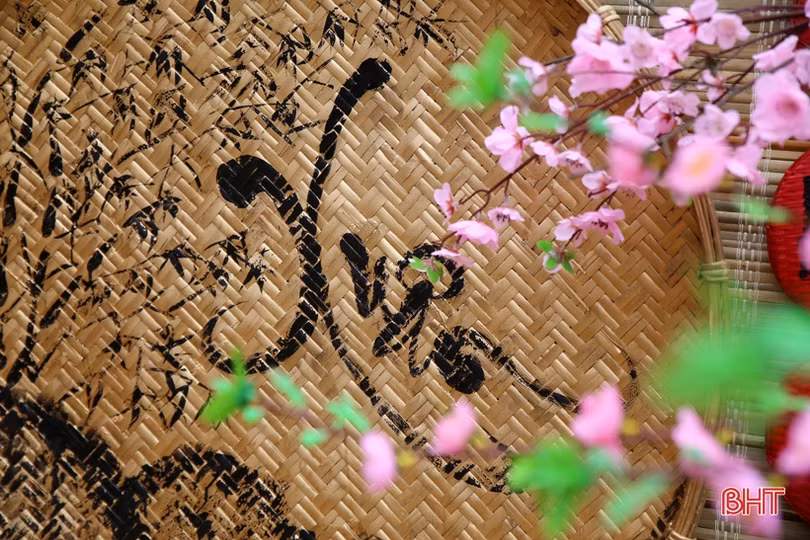 Xuân
BHT